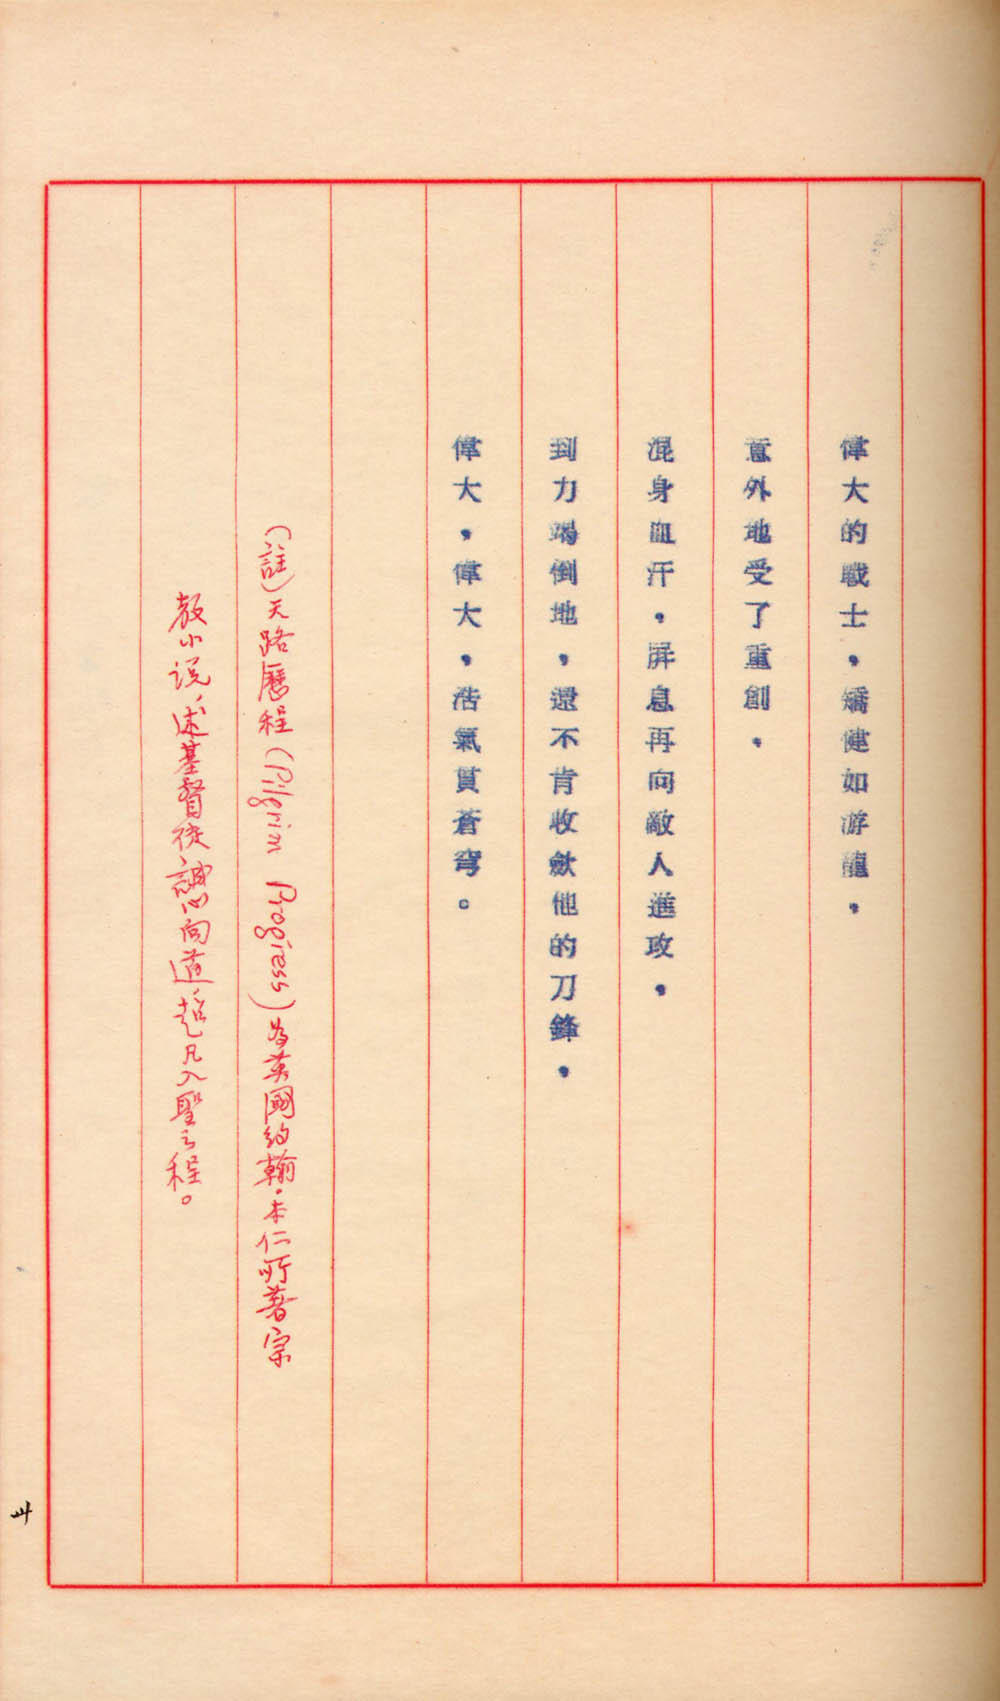 偉大的戰士，矯健如游龍，
意外地受了重創，
混身血汗，屏息再向敵人進攻，
到力竭倒地，還不肯收歛他的刀鋒，
偉大，偉大，浩氣貫蒼穹。
(註)天路歷程(Pilgrim Progress)為英國約翰·本仁所著宗
教小说，述基督徒誠心向道超凡入聖之程。
卅